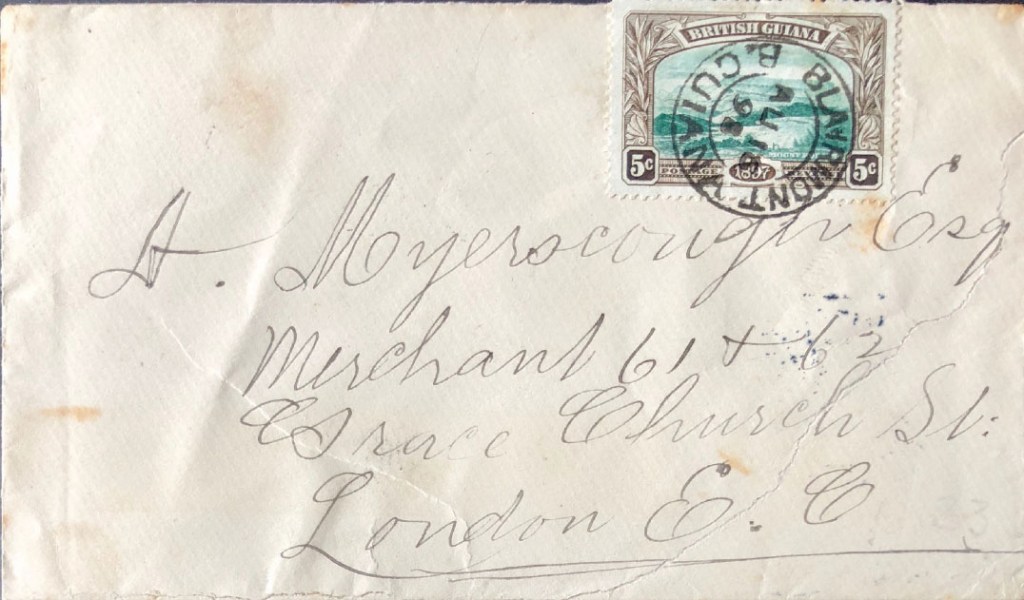 BRITISH GUIANA
BLAIRMONT
B. GUIANA
AU 18
98
5c POSTAGE 1897 5c
A. Myerscough Esqr
Merchant 61 & 62
Grace Church St:
London E. C